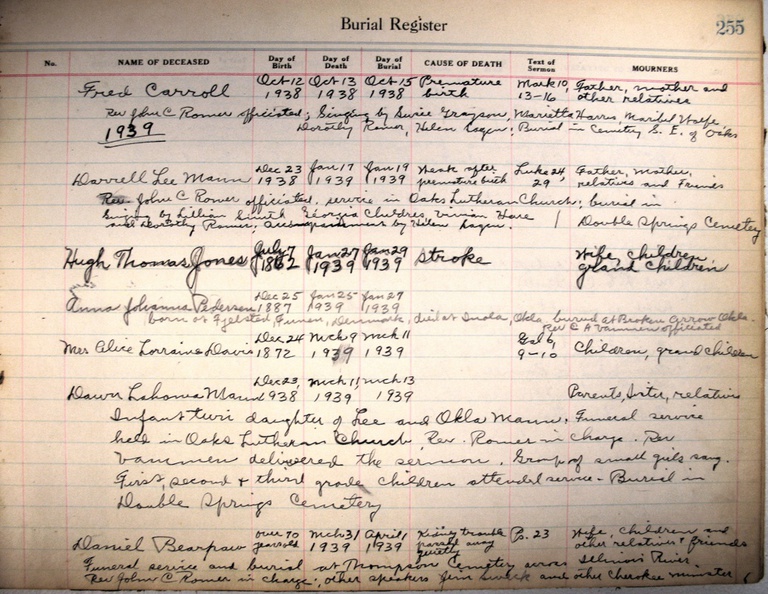 Burial Register
255
No. NAME OF DECEASED Day of Birth Day of Death Day of Burial CAUSE OF DEATH Text of Sermon MOURNERS
Fred Carroll Oct 12 1938 Oct 13 1938 Oct 15 1938 Premature birth Mark 10, 13-16 Father, mother and other relatives
Rev John C Romer officiated; Singing by Susie Grayson, Marietta Harris, Maribel Wolfe,
Dorothy Romer, Helen Lagen; Burial in Cemetery S. E. of Oaks
1939
Darrell Lee Mann Dec 23 1938 Jan 17 1939 Jan 19 1939 Weak after premature birth Luke 24, 29 Father, Mother, relatives and Friends
Rev. John C Romer officiated, service in Oaks Lutheran Church; burial in
Singing by Lillian Smith Georgia Childres, Vivian Hare
and Dorothy Romer; accompaniment by Helen Lagen. / Double Springs Cemetery
Hugh Thomas Jones July 7 1862 Jan 27 1939 Jan 29 1939 Stroke Wife, children, grand children
Anna Johanna Pedersen Dec 25 1887 Jan 25 1939 Jan 27 1939
born at Fjelsted, Funen, Denmark, died at Inola, Okla, buried at Broken Arrow Okla.
Rev C A Vammen officiated
Mrs Alice Lorraine Davis Dec 24 1872 Mch 9 1939 Mch 11 1939 Gal 6, 9-10 Children, grand children
Dawn Lahoma Mann Dec 23, 1938 Mch 11, 1939 Mch 13 1939 Parents, sister, relatives
Infant twin daughter of Lee and Okla Mann. Funeral service
held in Oaks Lutheran Church, Rev. Romer in charge. Rev
Vammen delivered the sermon. Group of small girls sang.
First, second & third grade children attended service - Burial in
Double Springs Cemetery
Daniel Bearpaw over 70 years old Mch 31 1939 April 1 1939 Kidney trouble passed away quietly Ps. 23 Wife, children and other relatives & friends
Funeral service and burial at Thompson Cemetery across Illinois River.
Rev John C Romer in charge; other speakers Jim and other Cherokee minister